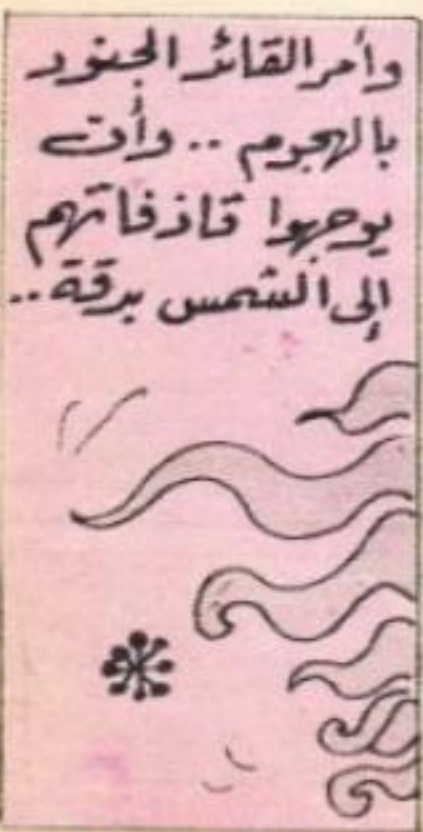 وأمر القائد الجنود
بالهجوم .. وأن
يوجهوا قاذفاتهم
إلى الشمس بدقة ..